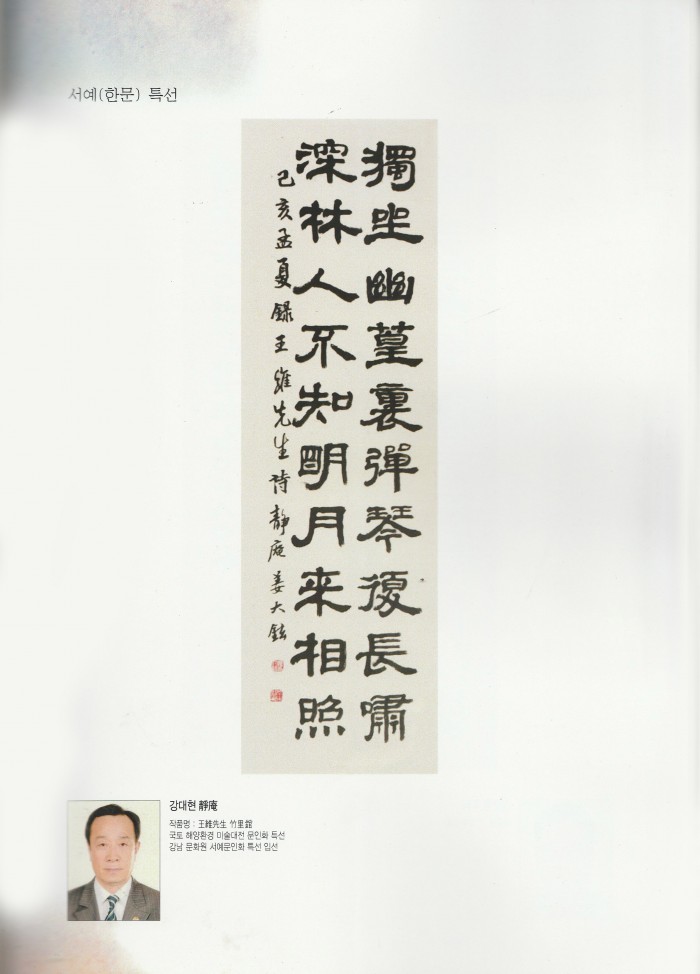 서예(한문) 특선
獨坐幽篁裏彈琴復長嘯
深林人不知明月来相照
己亥孟夏録王維先生詩靜庵姜大鉉
강대현 靜庵
작품명 : 王維先生 竹里館
국토 해양환경 미술대전 문인화 특선
강남 문화원 서예문인화 특선 입선